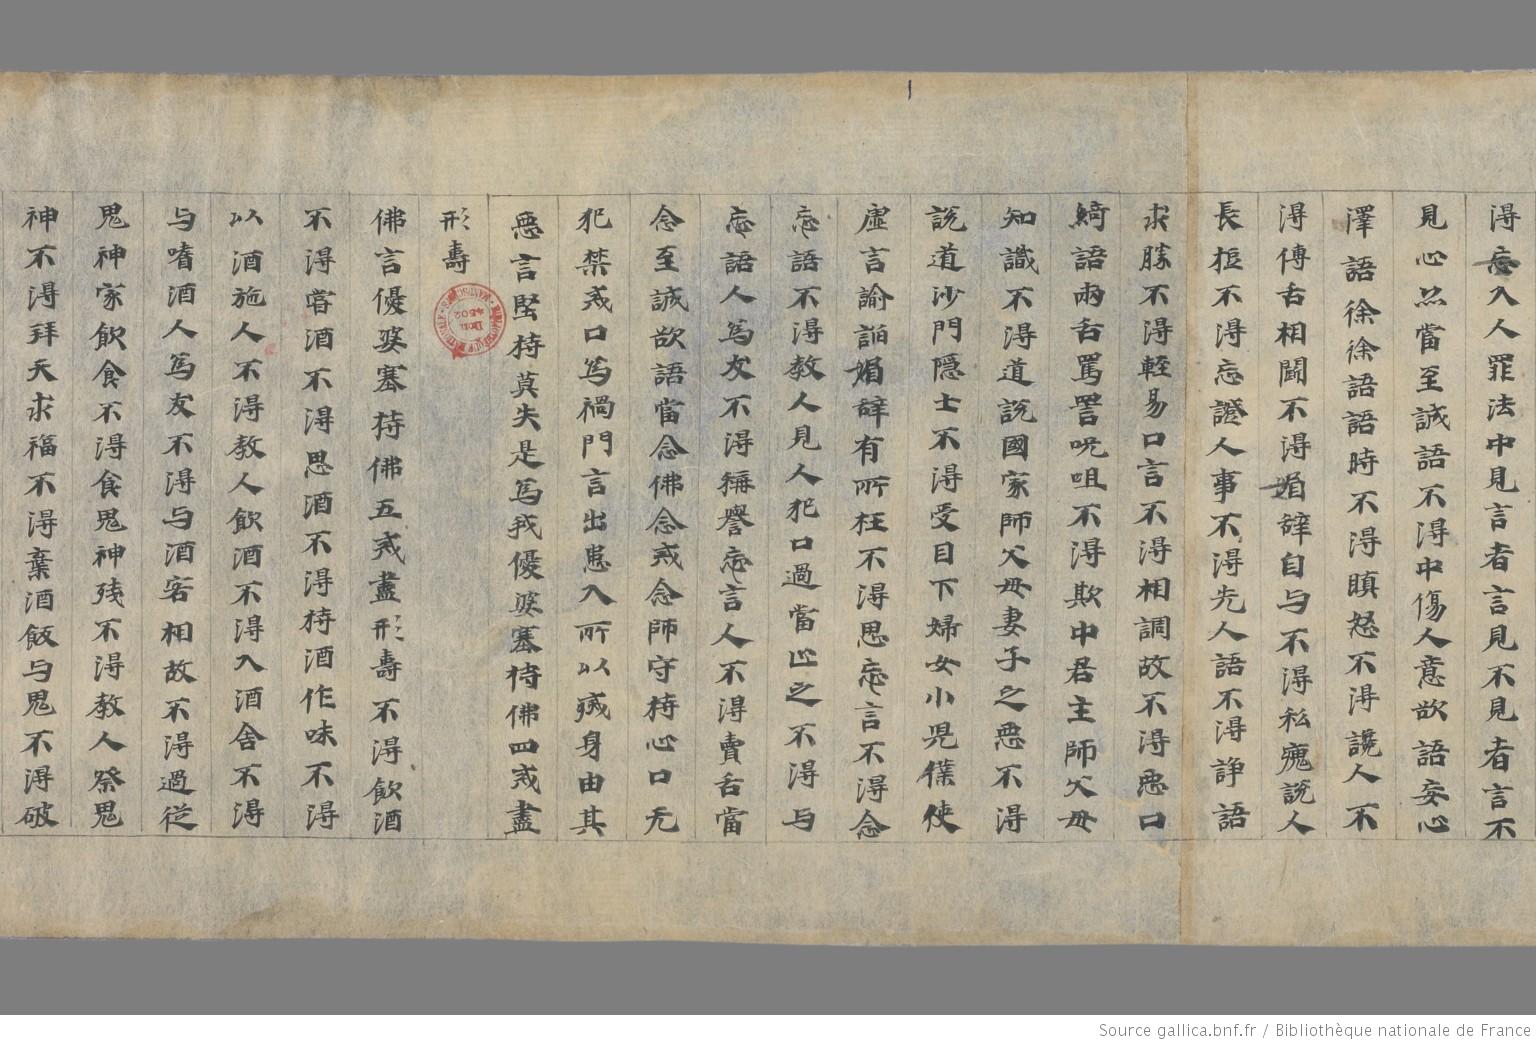 得忘入人罪法中見言者言見不見者言不
見心口當至誠語不得中傷人意欲語妄心
澤語徐徐語語時不得瞋怒不得讒人不
得傳舌相鬪不得媚辞自与不得私魔說人
長短不得忘證人事不得先人語不得諍語
求勝不得輕易口言不得相調故不得惡口
綺語兩舌罵詈呪咀不得欺中君主師父母
知識不得道說國家師父母妻子之惡不得
說道沙門隱士不得受目下婦女小児僕使
虛言諭詣媚辞有所枉不得思忘言不得念
忘語不得教人見人犯口過當止之不得与
忘語人為友不得稱譽忘言人不得賣舌當
念至誠欲語當念佛念戒念師守持心口无
犯禁戒口為禍門言出患入所以殘身由其
惡言堅持莫失是為我優婆塞持佛四戒盡
形壽
佛言優婆塞持佛五戒盡形壽不得飲酒
不得嘗酒不得思酒不得持酒作味不得
以酒施人不得教人飲酒不得入酒舍不得
与嗜酒人為友不得与酒客相故不得過従
鬼神家飲食不得食鬼神殘不得教人祭鬼
神不得拜天求福不得棄酒飯与鬼不得破
MANUSCRITS
DON
4502
Source gallica.bnf.fr / Bibliothèque nationale de France